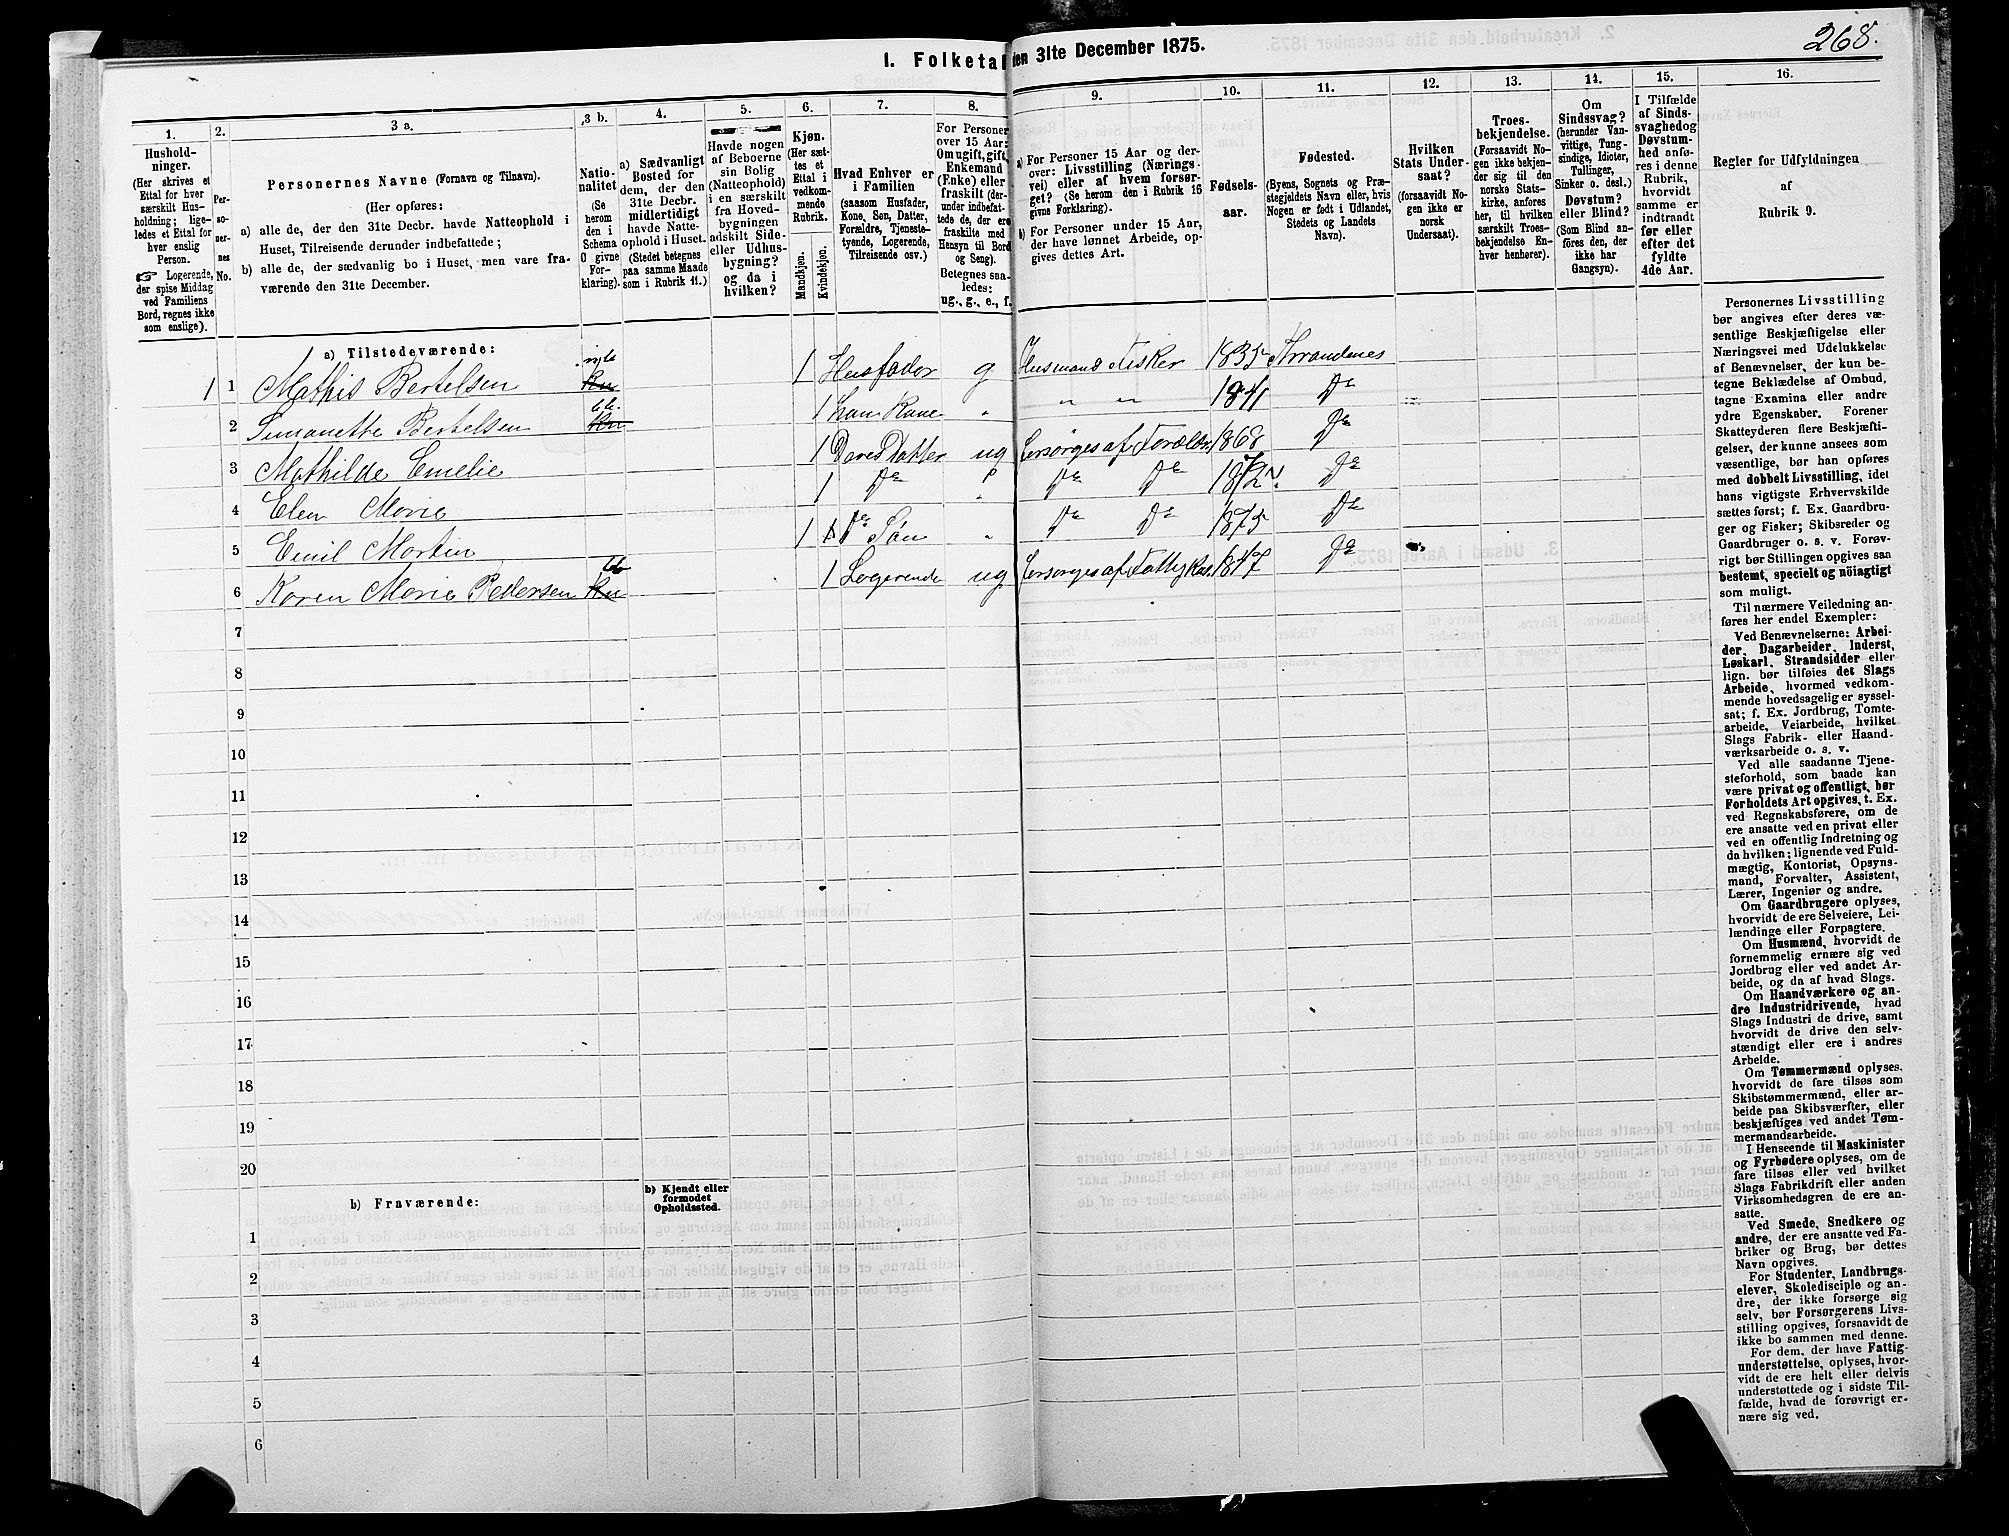 268.
I. Folketal den 31te December 1875.
1.
Hushold-
ninger.
(Her skrives et
Ettal for hver
særskilt Hus-
holdning; lige-
ledes et Ettal for
hver enslig
Person.
☞ Logerende,
der spise Middag
ved Familiens
Bord, regnes ikke
som enslige).
2.
Per-
so-
ner-
nes
No.
3 a.
Personernes Navne (Fornavn og Tilnavn).
(Her opføres:
a) alle de, der den 31te Decbr. havde Natteophold i
Huset, Tilreisende derunder indbefattede;
b) alle de, der sædvanlig bo i Huset, men vare fra-
værende den 31te December.
3 b.
Natio-
nalitet
(Se
herom
den i
Schema
O givne
For-
klaring).
4.
a) Sædvanligt
Bosted for
dem, der den
31te Decbr.
midlertidigt
havde Natte-
ophold i Huset.
(Stedet betegnes
paa samme Maade
som i Rubrik 11.)
5.
Havde nogen
af Beboerne
sin Bolig
(Natteophold)
i en særskilt
fra Hoved-
bygningen
adskilt Side-
eller Udhus-
bygning?
og da i
hvilken?
6.
Kjøn.
(Her sæt-
tes et
Ettal i
vedkom-
mende
Rubrik.
Mandkjøn.
Kvindekjøn.
7.
Hvad Enhver er
i Familien
(saasom Husfader,
Kone, Søn, Datter,
Forældre, Tjeneste-
tyende, Logerende,
Tilreisende osv.)
8.
For Personer
over 15 Aar:
Om ugift, gift,
Enkemand
(Enke) eller
fraskilt (der-
under indbefat-
tede de, der ere
fraskilte med
Hensyn til Bord
og Seng).
Betegnes saa-
ledes:
ug., g., e., f.
9.
a) For Personer 15 Aar og der-
over: Livsstilling (Nærings-
vei) eller af hvem forsør-
get? (Se herom den i Rubrik 16
givne Forklaring).
b) For Personer under 15 Aar,
der have lønnet Arbeide, op-
gives dettes Art.
10.
Fødsels-
aar.
11.
Fødested.
(Byens, Sognets og Præ-
stegjeldets Navn eller, hvis
Nogen er født i Udlandet,
Stedets og Landets
Navn).
12.
Hvilken
Stats Under-
saat?
(forsaavidt No-
gen ikke er
norsk
Undersaat).
13.
Troes-
bekjendelse.
(Forsaavidt No-
gen ikke bekjen-
der sig til den
norske Stats-
kirke, anføres
her, til hvilken
særskilt Troes-
bekjendelse En-
hver henhører).
14.
Om
Sindssvag?
(herunder Van-
vittige, Tung-
sindige, Idioter,
Tullinger,
Sinker o. desl.)
Døvstum?
eller Blind?
(Som Blind an-
føres den, der
ikke har
Gangsyn).
15.
I Tilfælde
af Sinds-
svaghed og
Døvstum-
hed anfø-
res i denne
Rubrik,
hvorvidt
samme er
indtraadt
før eller
efter det
fyldte
4de Aar.
16.
Regler for Udfyldningen
af
Rubrik 9.
a) Tilstedeværende:
1 1 Mathis Bertelsen 1 Husfader g Husmand Fisker 1835 Thrandenes
2 Simonette Bertelsen 1 hans Kone " " " 1841 Do
3 Mathilde Emelie 1 Deres Datter ug forsørges af Forældre 1868 Do
4 Elen Marie 1 Do " Do Do 1872 Do
5 Emil Martin 1 Do Søn " Do Do 1875 Do
6 Karen Marie Pedersen 1 Logerende ug forsørges af Fattigkas. 1847 Do
7
8
9
10
11
12
13
14
15
16
17
18
19
20
b) Fraværende:
b) Kjendt eller
formodet
Opholdssted.
1
2
3
4
5
6
Personernes Livsstilling
bør angives efter deres væ-
sentlige Beskjæftigelse eller
Næringsvei med Udelukkelse
af Benævnelser, der kun be-
tegne Beklædelse af Ombud,
tagne Examina eller andre
ydre Egenskaber. Forener
Skatteyderen flere Beskjæfti-
gelser, der kunne ansees som
væsentlige, bør han opføres
med dobbelt Livsstilling, idet
hans vigtigste Erhvervskilde
sættes først; f. Ex. Gaardbru-
ger og Fisker; Skibsreder og
Gaardbruger o. s. v. Forøv-
rigt bør Stillingen opgives saa
bestemt, specielt og nöiagtigt
som muligt.
Til nærmere Veiledning an-
føres her endel Exempler:
Ved Benævnelserne: Arbei-
der, Dagarbeider, Inderst,
Løskarl, Strandsidder eller
lign. bør tilføies det Slags
Arbeide, hvormed vedkom-
mende hovedsagelig er syssel-
sat; f. Ex. Jordbrug, Tomte-
arbeide, Veiarbeide, hvilket
Slags Fabrik- eller Haand-
værksarbeide o. s. v.
Ved alle saadanne Tjene-
steforhold, som baade kan
være privat og offentligt, bør
Forholdets Art opgives, t. Ex.
ved Regnskabsførere, om de
ere ansatte ved en privat eller
ved en offentlig Indretning og
da hvilken; lignende ved Fuld-
mægtig, Kontorist, Opsyns-
mand, Forvalter, Assistent,
Lærer, Ingeniør og andre.
Om Gaardbrugere oplyses,
hvorvidt de ere Selveiere, Lei-
lændinge eller Forpagtere.
Om Husmænd, hvorvidt de
fornemmelig ernære sig ved
Jordbrug eller ved andet Ar-
beide, og da af hvad Slags.
Om Haandværkere og an-
dre Industridrivende, hvad
Slags Industri de drive, samt
hvorvidt de drive den selv-
stændigt eller ere i andres
Arbeide.
Om Tømmermænd oplyses,
hvorvidt de fare tilsøs som
Skibstømmermænd, eller ar-
beide paa Skibsværfter, eller
beskjæftiges ved andet Tøm-
mermandsarbeide.
I Henseende til Maskinister
og Fyrbødere oplyses, om de
fare tilsøs eller ved hvilket
Slags Fabrikdrift eller anden
Virksomhedsgren de ere an-
satte.
Ved Smede, Snedkere og
andre, der ere ansatte ved Fa-
briker og Brug, bør dettes
Navn opgives.
For Studenter, Landbrugs-
elever, Skoledisciple og an-
dre, der ikke forsørge sig
selv, bør Forsørgerens Livs-
stilling opgives, forsaavidt de
ikke bo sammen med denne.
For dem, der have Fattig-
understøttelse, oplyses, hvor-
vidt de ere helt eller delvis
understøttede og i sidste Til-
fælde, hvad de forøvrigt er-
nære sig ved.